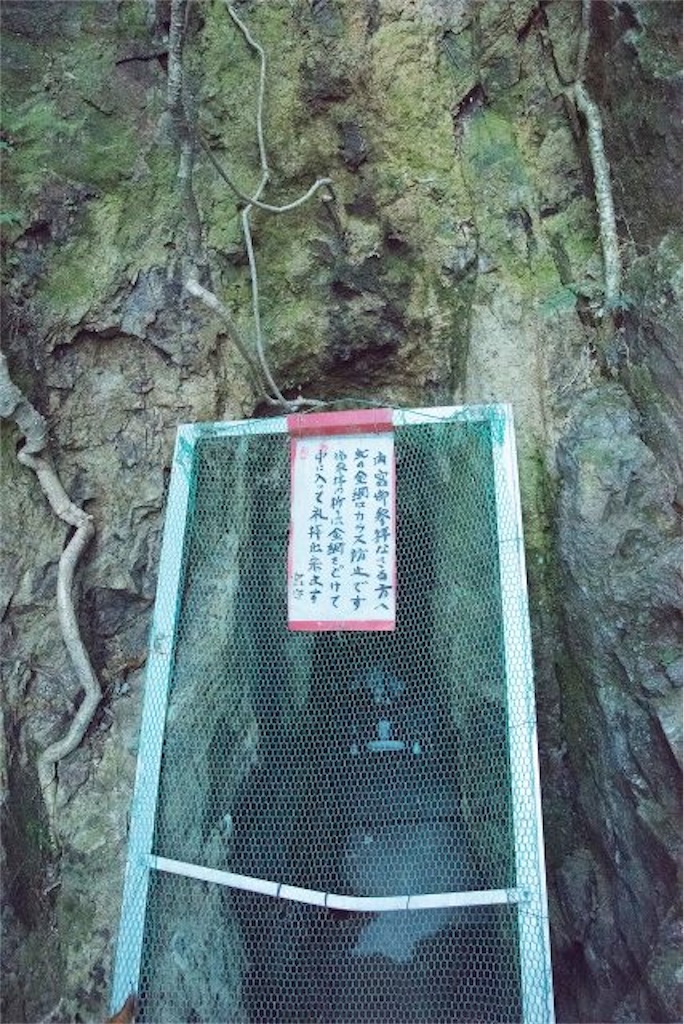 内宮御参拝なさる方へ
此の金網はカラス防止です
御参拝の際は金網をどけて
中に入って礼拝出来ます